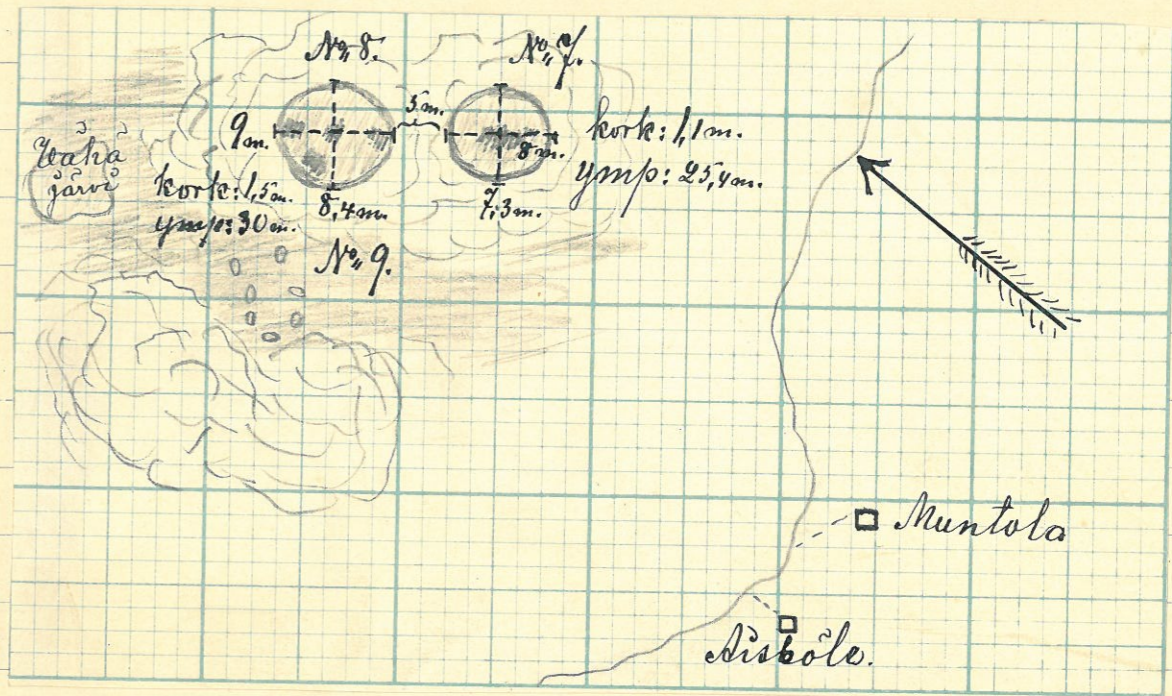 No 8.
No 7.
5 m.
9 m.
8 m.
kork: 1,1 m.
ymp: 25,4 m.
Wähä
järvi
kork: 1,5 m.
ymp: 30 m.
8,4 m.
7,3 m.
No 9.
Muntola